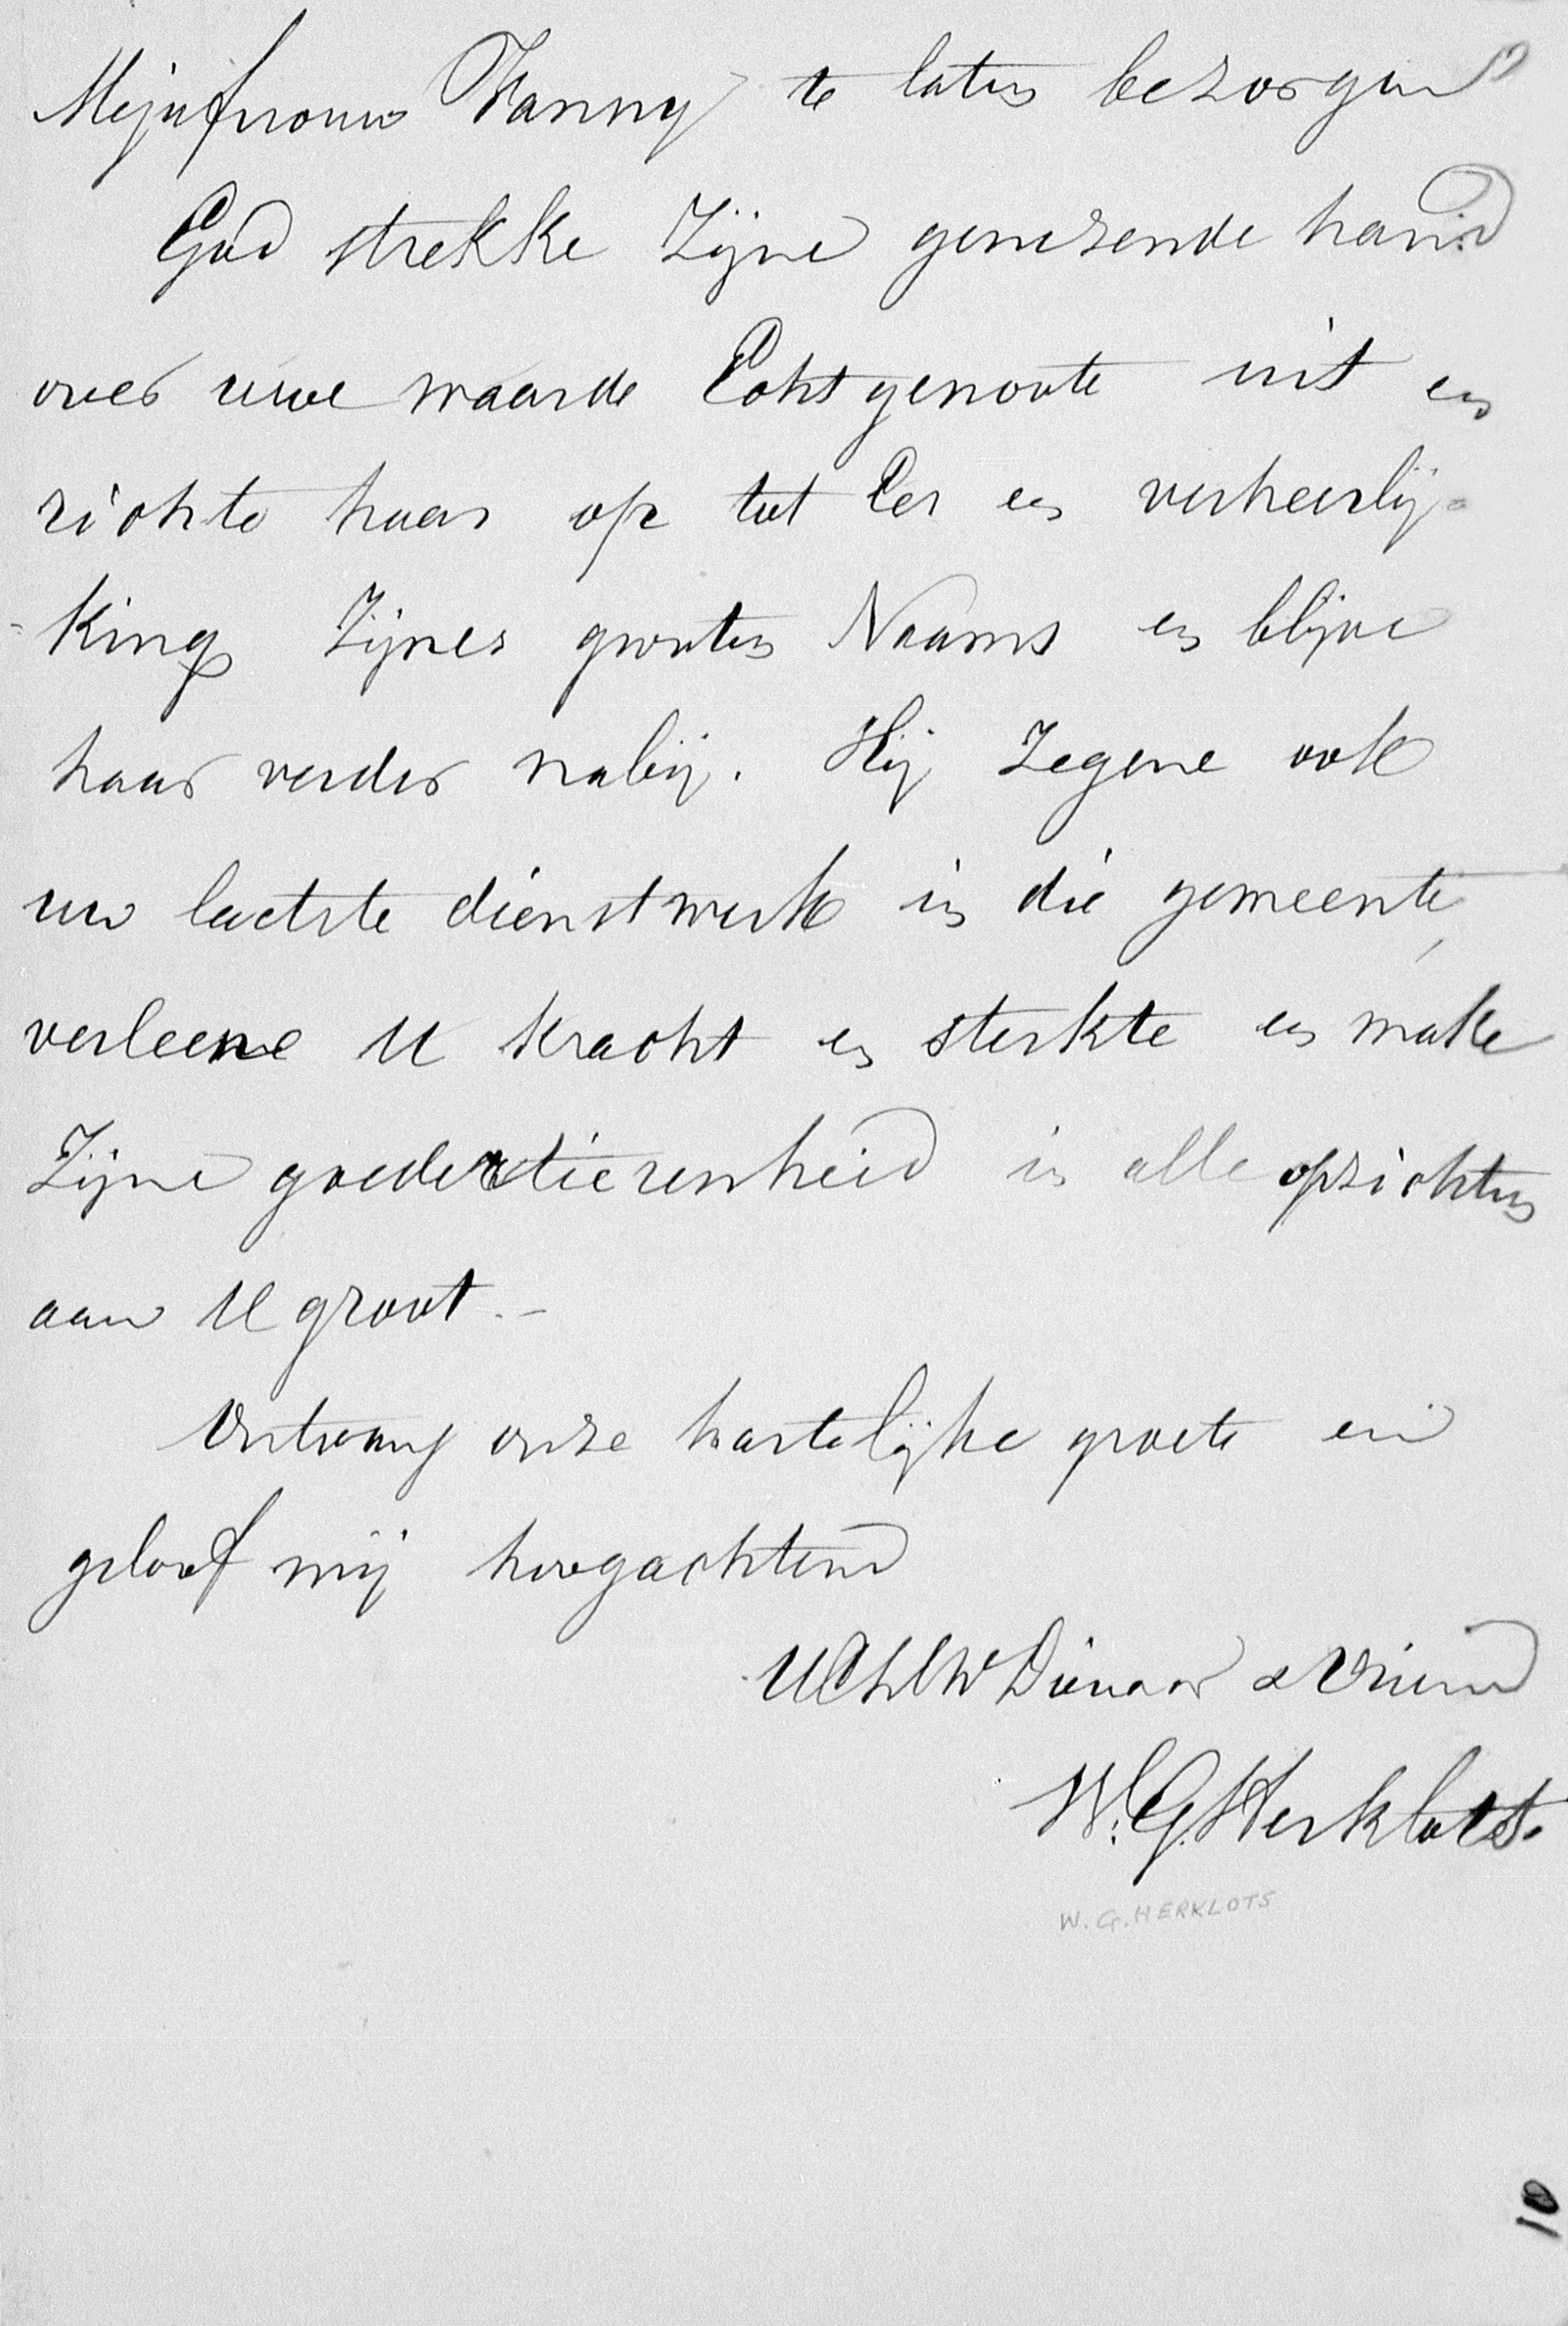 Mejufvrouw Fanny te laten bezorgen
God strekke Zijne genezende hand
over uwe waarde Echtgenoote uit en
richte haar op tot Eer en verheerlij-
king Zijnes grooten Naams en blijve
haar verder nabij. Hij Zegene ook
uw laatste dienstwerk in die gemeente,
verleene U kracht en sterkte en make
Zijne goedertierenheid in alle opzichten
aan U groot. -
Ontvang onze hartelijke groete en
geloof mij hoogachtend
Dienaar & Vriend
W. G. Herklots.
W. G. HERKLOTS
10